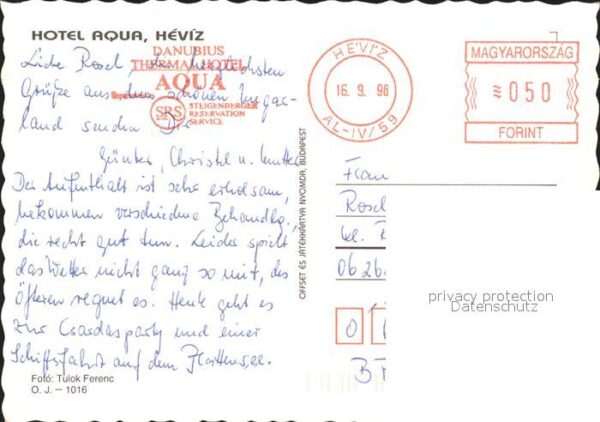 HOTEL AQUA, HÉVÍZ
DANUBIUS
THERMAL HOTEL
AQUA
SRS STEIGENBERGER
RESERVATION
SERVICE
HÉVÍZ
16. 9. 96
AL-IV/59
MAGYARORSZÁG
≈050
FORINT
Liebe Rosel, die herzlichsten
Grüße aus dem schönen Ungar-
land senden Dir
Günter, Christel u. Mutter
Der Aufenthalt ist sehr erholsam,
bekommen verschiedene Behandlg.,
die recht gut tun. Leider spielt
das Wetter nicht ganz so mit, des
Öfteren regnet es. Heute geht es
zur Csardasparty und einer
Schiffsfahrt auf dem Plattensee.
Fotó: Tulok Ferenc
O. J. — 1016
OFFSET ÉS JÁTÉKKÁRTYA NYOMDA, BUDAPEST
Frau
Rosel
kl.
0626
0
privacy protection
Datenschutz